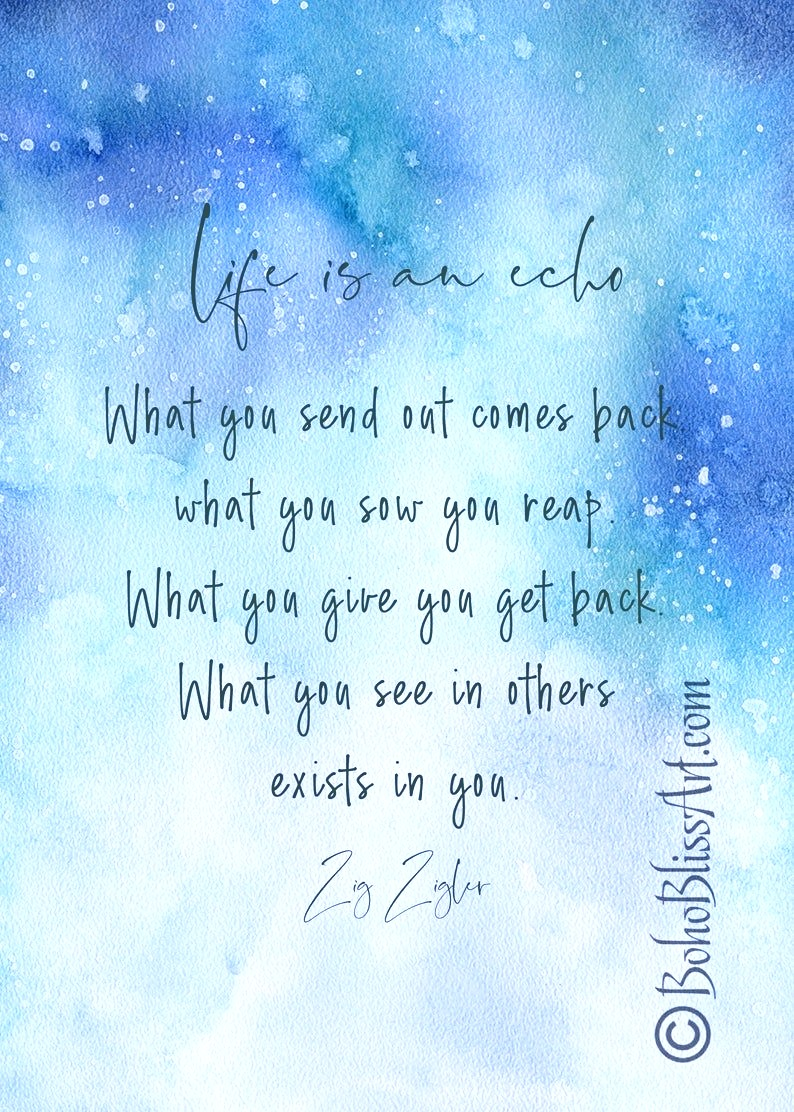 Life is an echo
What you send out comes back.
what you sow you reap.
What you give you get back.
What you see in others
exists in you.
Zig Zigler
©BohoBlissArt.com